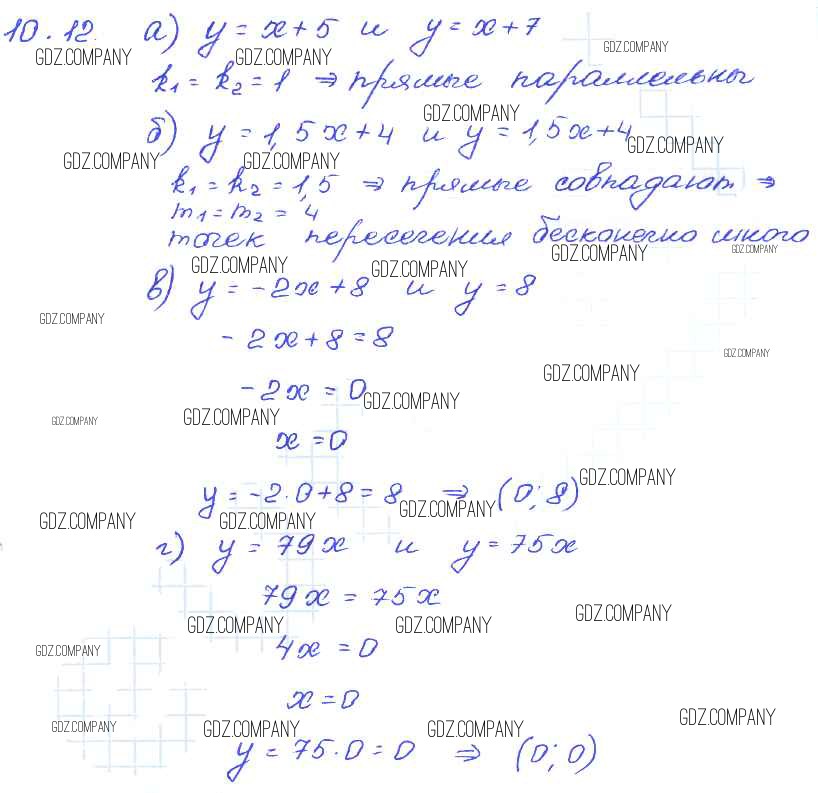 10.12. а) y = x+5 и y = x+7
GDZ.COMPANY GDZ.COMPANY GDZ.COMPANY
k₁ = k₂ = 1 ⇒ прямые параллельны
GDZ.COMPANY
б) y = 1,5x+4 и y = 1,5x+4
GDZ.COMPANY GDZ.COMPANY GDZ.COMPANY
k₁ = k₂ = 1,5 ⇒ прямые совпадают ⇒
m₁ = m₂ = 4
точек пересечения бесконечно много
GDZ.COMPANY GDZ.COMPANY GDZ.COMPANY GDZ.COMPANY
в) y = -2x+8 и y = 8
GDZ.COMPANY
-2x+8 = 8
GDZ.COMPANY
GDZ.COMPANY
-2x = 0
GDZ.COMPANY
GDZ.COMPANY GDZ.COMPANY
x = 0
GDZ.COMPANY
y = -2·0+8 = 8 ⇒ (0; 8)
GDZ.COMPANY GDZ.COMPANY GDZ.COMPANY
г) y = 79x и y = 75x
79x = 75x
GDZ.COMPANY
GDZ.COMPANY GDZ.COMPANY
4x = 0
GDZ.COMPANY
x = 0
GDZ.COMPANY GDZ.COMPANY GDZ.COMPANY GDZ.COMPANY
y = 75·0 = 0 ⇒ (0; 0)